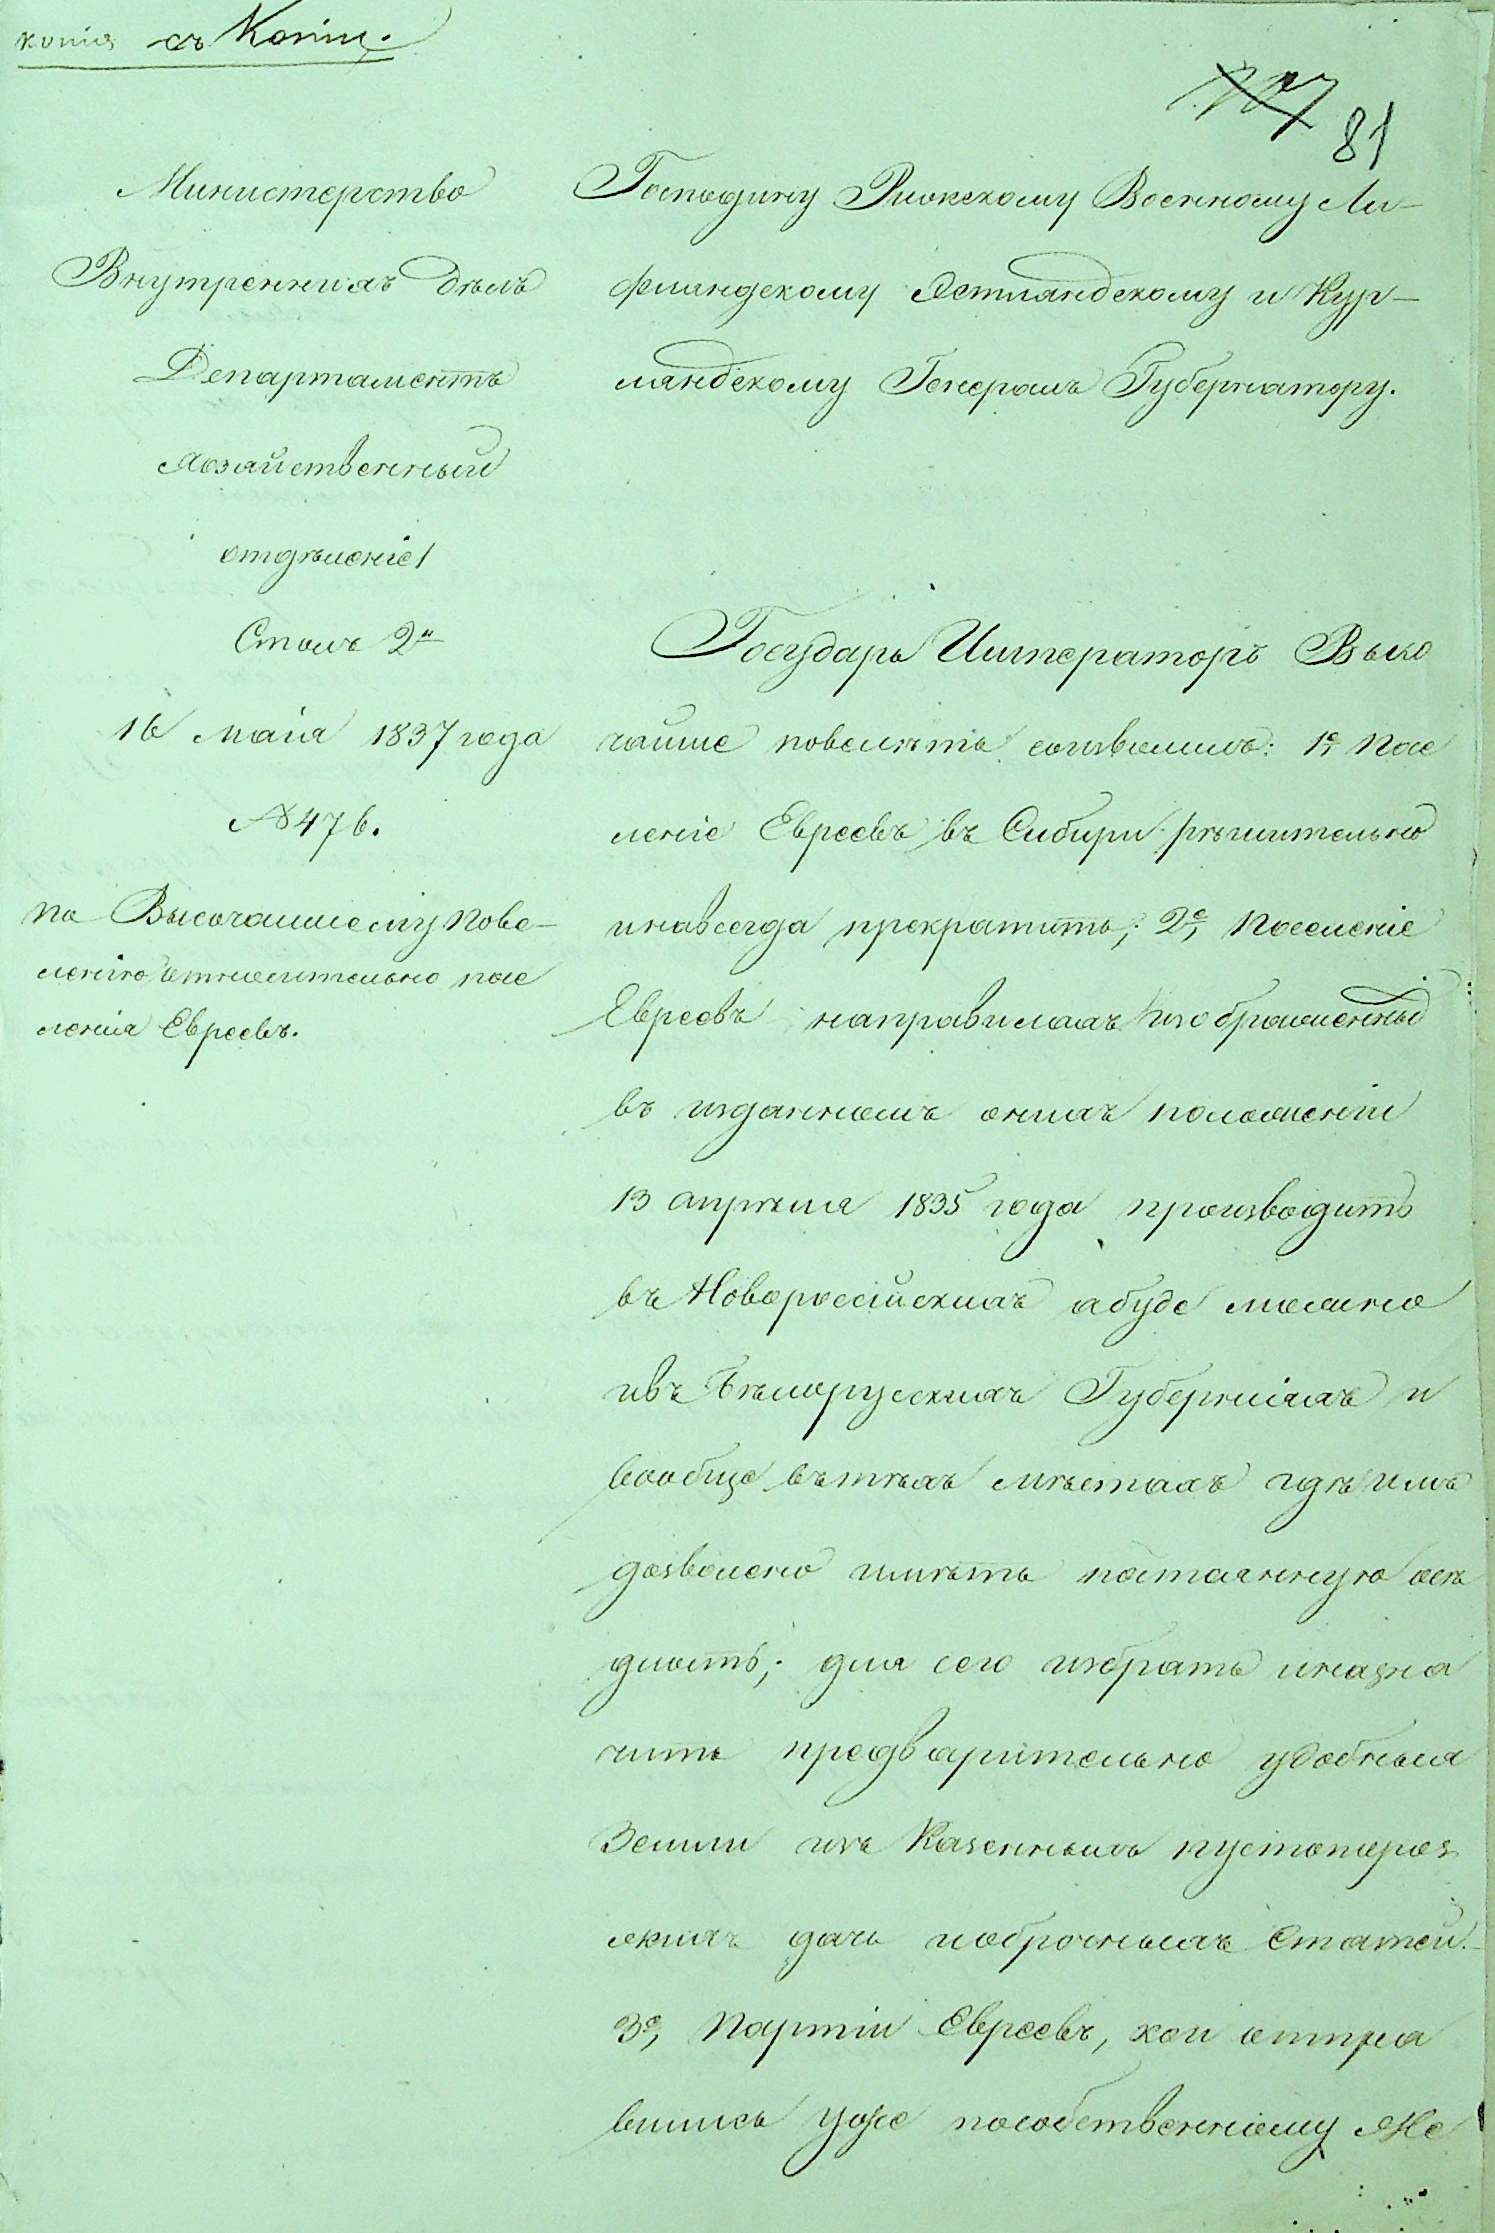 копія съ Копіи.
81
Министерство
Внутреннихъ дѣлъ
Департаментъ
Хозяйственный
отдѣленіе 1
Столъ 2й
16 маія 1837 года
№ 476.
по Высочайшему пове-
лѣнію относительно посе
ленія Евреевъ.
Господину Рижскому Военному Ли-
фляндскому Эстляндскому и Кур-
ляндскому Генералъ Губернатору.
Государь Императоръ Высо
чайше повелѣть соизволилъ: 1е, Посе
леніе Евреевъ въ Сибири рѣшительно
инавсегда прекратить; 2е, Поселеніе
Евреевъ направилахъ изображенныхъ
въ изданномъ онихъ положеніи
13 апрѣля 1835 года производить
въ Новороссійскихъ абуде можно
ивъ Бѣлорусскихъ Губерніяхъ и
вообще вътѣхъ мѣстахъ гдѣ имъ
дозволено имѣть постоянную осѣ
длость; для сего избрать иназна
чить предварительно удобныя
Земли изъ Казенныхъ пустопороз
жихъ дачъ иоброчныхъ Статей.
3е, Партіи Евреевъ, кои отпра
вились уже пособственному же